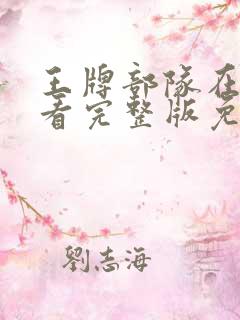 王牌部隊在
看完整版免
劉志海